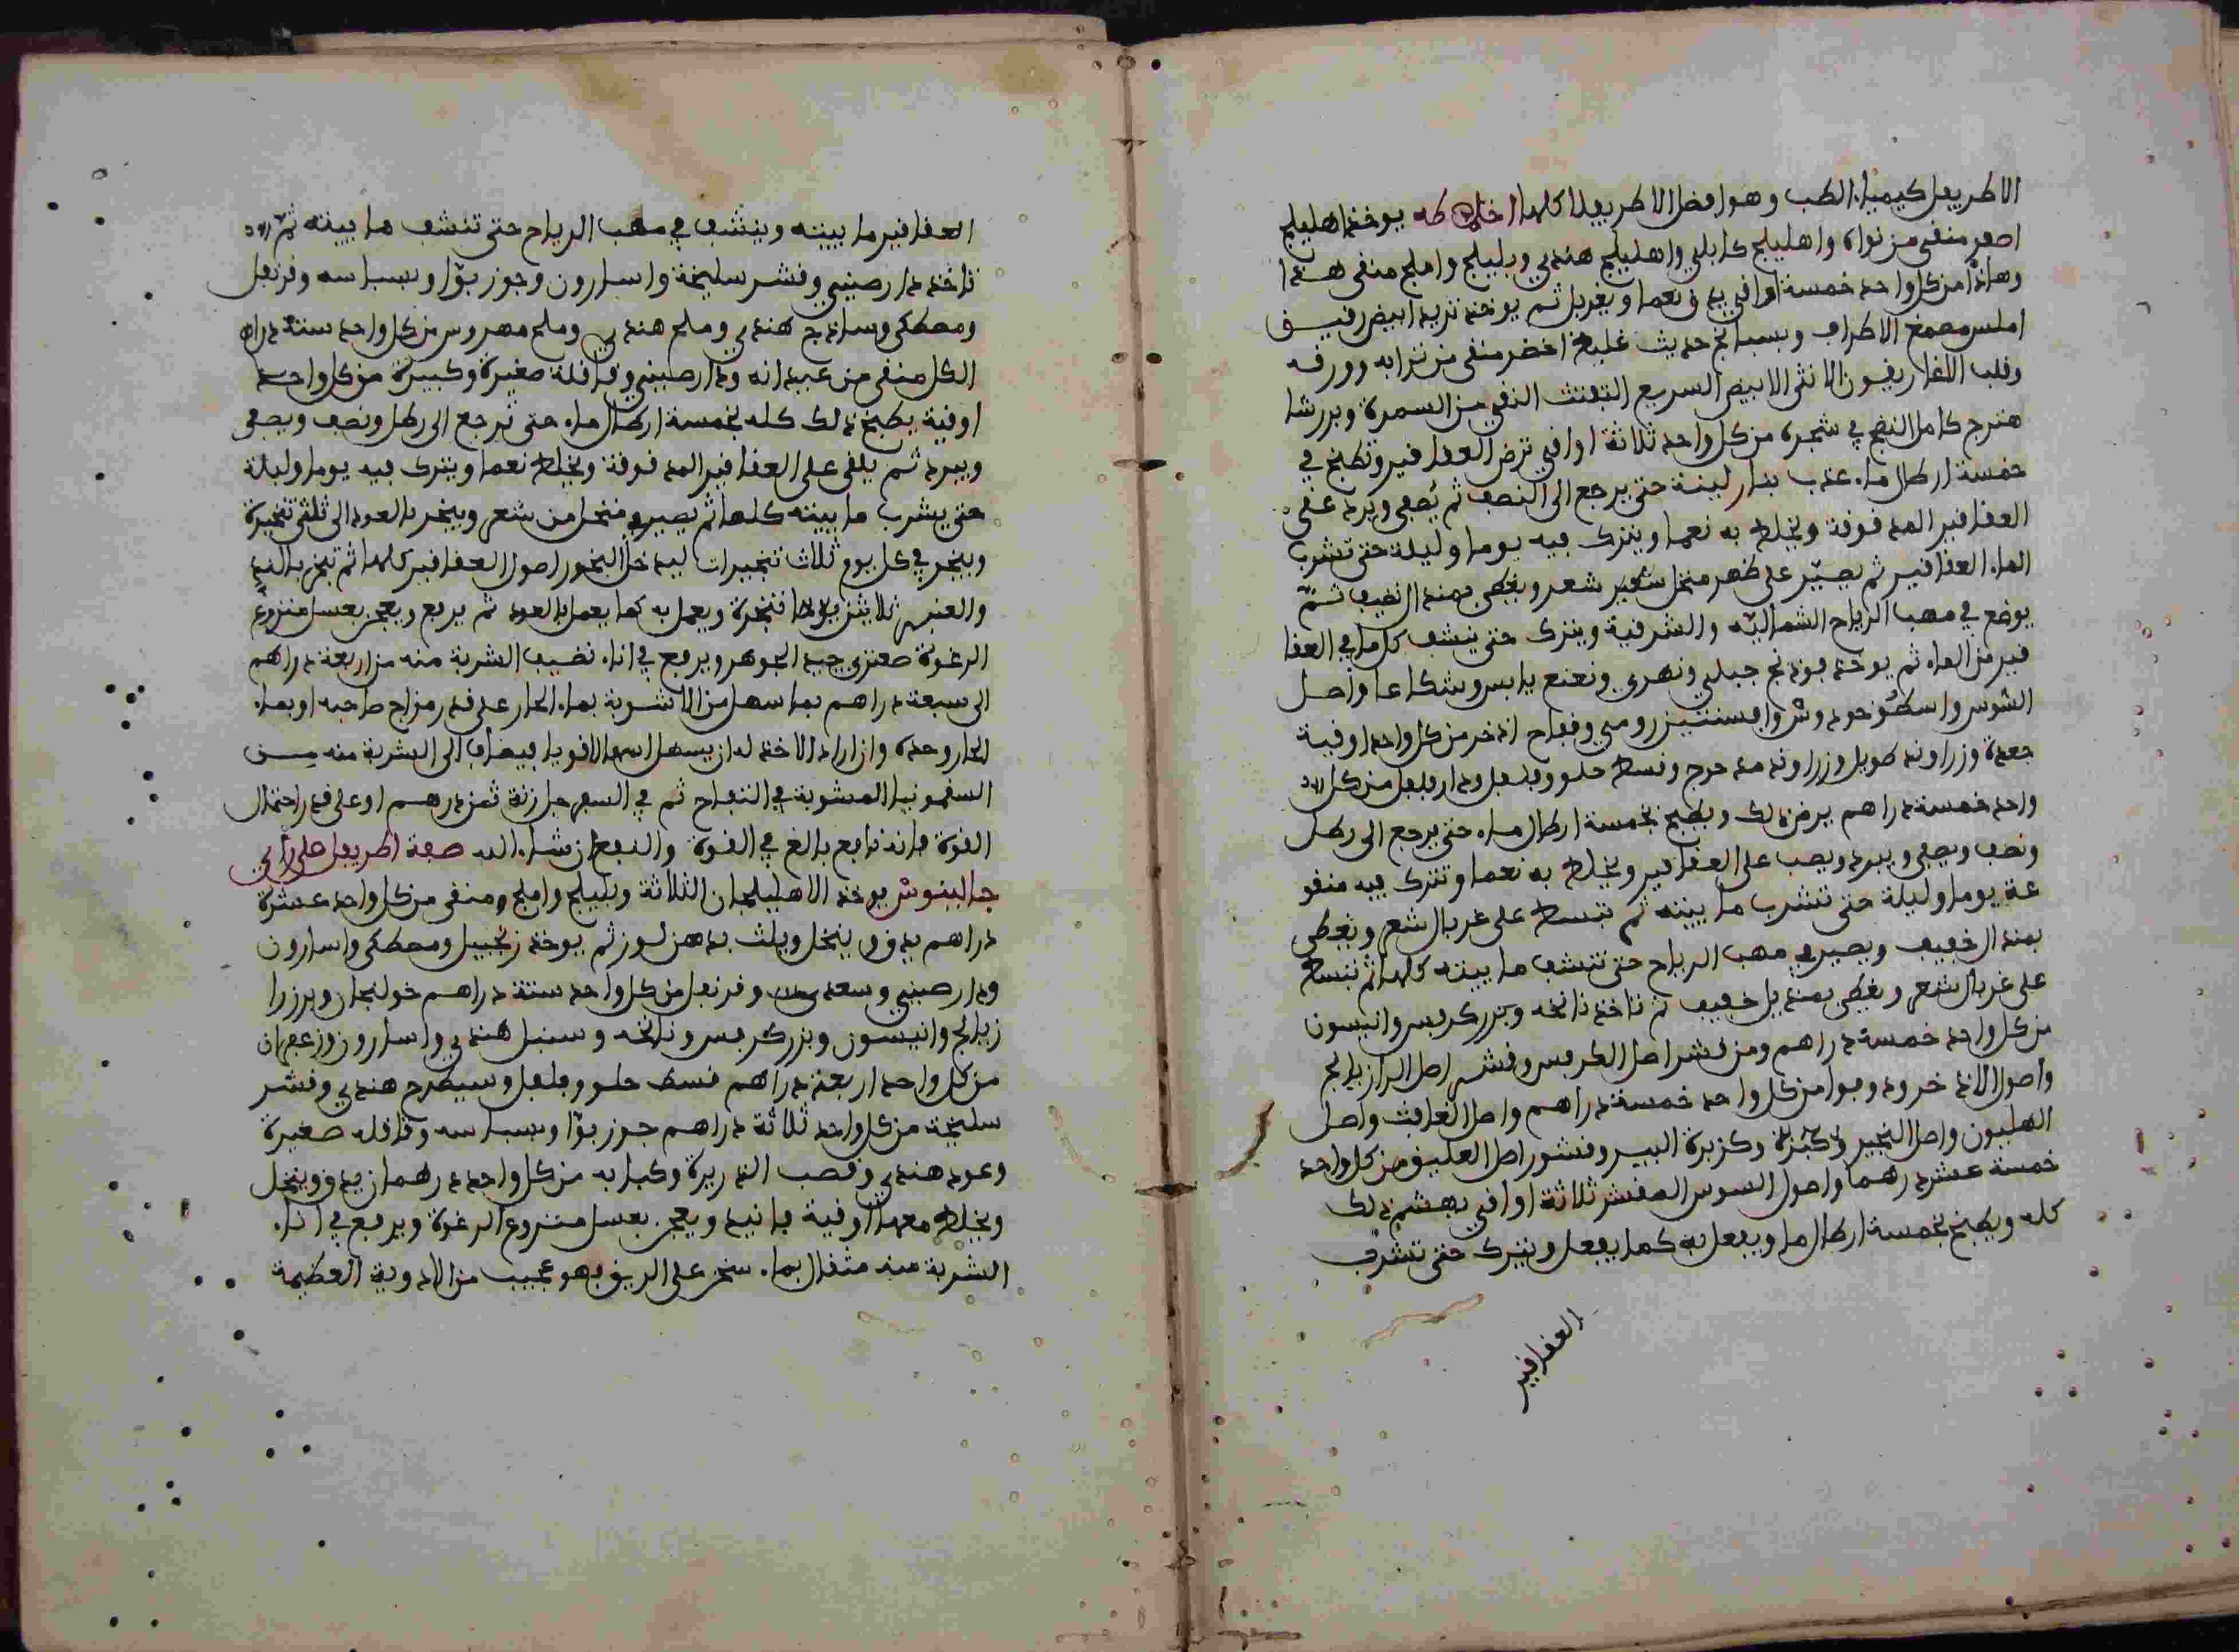 الاطريفل كيمياء الطب وهو افضل الاطريفلا كلها اخلاطه يوخذ اهليلج
اصفر منقى من نواه واهليلج كابلي واهليلج هندي وبليلج واملج منقى هندا
وهاذا من كل واحد خمسة اواقي يدق نعما ويغربل ثم يوخذ تربد ابيض رقيق
املس مصمغ الاطراف وبسبايج حديث غليظ اخضر منقى من ترابه وورقه
وقلب الاغاريقون الانثى الابيض السريع التفتت النقي من السمرة وبزر شا
هترج كامل النضج في شجره من كل واحد ثلاثة اواقي ترض العقاقير وتطبخ في
خمسة ارطال ماء عذب بنار لينة حتى يرجع الى النصف ثم يصفى ويرد على
العقاقير المدقوقة ويخلط به نعما ويترك فيه يوما وليلة حتى تشرب
الماء العقاقير ثم يصير على ظهر منخل شعير شعر ويغطى بمنديل نضيف ثم
يوضع في مهب الرياح الشمالية والشرقية ويترك حتى ينشف كل ما في العقا
قير من الماء ثم يوخذ فوذنج جبلي ونهري ونعنع يابس وشكاعا واصل
الشوس واسطوخودوش وافسنتين رومي وفقاح اذخر من كل واحد اوقية
جعدة وزراوند طويل وزراوند مدحرج وقسط حلو وفلفل ودار فلفل من كل
واحد خمسة دراهم يرض ذلك ويطبخ بخمسة ارطال ماء حتى يرجع الى رطل
ونصف ويصفى ويبرد ويصب على العقاقير ويخلط به نعما وتترك فيه منقو
عة يوما وليلة حتى تتشرب ما بينه ثم تبسط على غربال شعر وتغطى
بمنديل خفيف ويصير في مهب الرياح حتى تنشف ما بينه كلها ثم تبسط
على غربال شعر ويغطى بمنديل خفيف ثم تاخذ نانخه وبزر كرفس وانيسون
من كل واحد خمسة دراهم ومن قشر اصل الكرفس وقشر اصل الرازيانج
واصول الاذخر ودوقوا من كل واحد خمسة دراهم واصل الغافث واصل
الهليون واصل النجير وكبرة وكزبرة البير وقشور اصل العليق من كل واحد
خمسة عشر درهما واصول السوس المقشر ثلاثة اواقي يهشم ذلك
كله ويطبخ بخمسة ارطال ما ويفعل به كما يفعل ويترك حتى تشرب
العقاقير
العقاقير ما بينه وينشف في مهب الرياح حتى تنشف ما بينه ثم
تاخذ دار صيني وقشر سليخة واسارون وجوز بوا وبسباسه وقرنفل
ومصطكى وساذج هندي وملح هندي وملح مهروس من كل واحد ستة دراهم
الكل منقى من عيدانه ودار صيني وقاقلة صغيرة وكبيرة من كل واحد
اوقية يطبخ ذلك كله بخمسة ارطال ماء حتى ترجع الى رطل ونصف ويصفى
ويبرد ثم يلقى على العقاقير المدقوقة ويخلط نعما ويترك فيه يوما وليلة
حتى يشرب ما بينه كلها ثم يصير في منخل من شعر ويبخر بالعود الى ثلثي تنجيرة
ويبخر في كل يوم ثلاث تبخيرات ليدخل البخور اصول العقاقير كلها ثم تبخر بالند
والعنبر ثلاثين تبخرة ويعمل به كما يعمل بالعود ثم يرفع ويعجن بعسل منزوع
الرغوة صعتري جيد الجوهر ويرفع في اناء نضيف الشربة منه من اربعة دراهم
الى سبعة دراهم بما سهل من الاشربة بماء الحار على قدر مزاج صاحبه او بماء
الحار وحده وان اراد الاخذ له ان يسهل اسهالا قويا فيضاف الى الشربة منه من
السقمونيا المشوية في التفاح ثم في السفرجل زنة ثمن درهم او على قدر احتمال
القوة فانه نافع بالغ في القوة والنفع ان شاء الله صفة اطريفل على راي
جالينوش يوخذ الاهليلجان الثلاثة وبليلج واملج ومنقى من كل واحد عشرة
دراهم يدق وينخل ويلث بدهن لوز ثم يوخذ زنجبيل ومصطكى واسارون
ودار صيني وسعدى وقرنفل من كل واحد ستة دراهم خولنجان وبزر را
زيانج وانيسون وبزر كرفس ونانخه وسنبل هندي واسارون وزعفران
من كل واحد اربعة دراهم قسط حلو وفلفل وسيطرج هندي وقشر
سليخة من كل واحد ثلاثة دراهم جوز بوا وبسباسه وقاقله صغيرة
وعود هندي وقصب الذريرة وكبابه من كل واحد درهمان يدق وينخل
ويخلط معها اوقية فانيد ويعجن بعسل منزوع الرغوة ويرفع في اناء
الشربة منه مثقال بماء سخن على الريق فهو عجيب من الادوية العظيمة